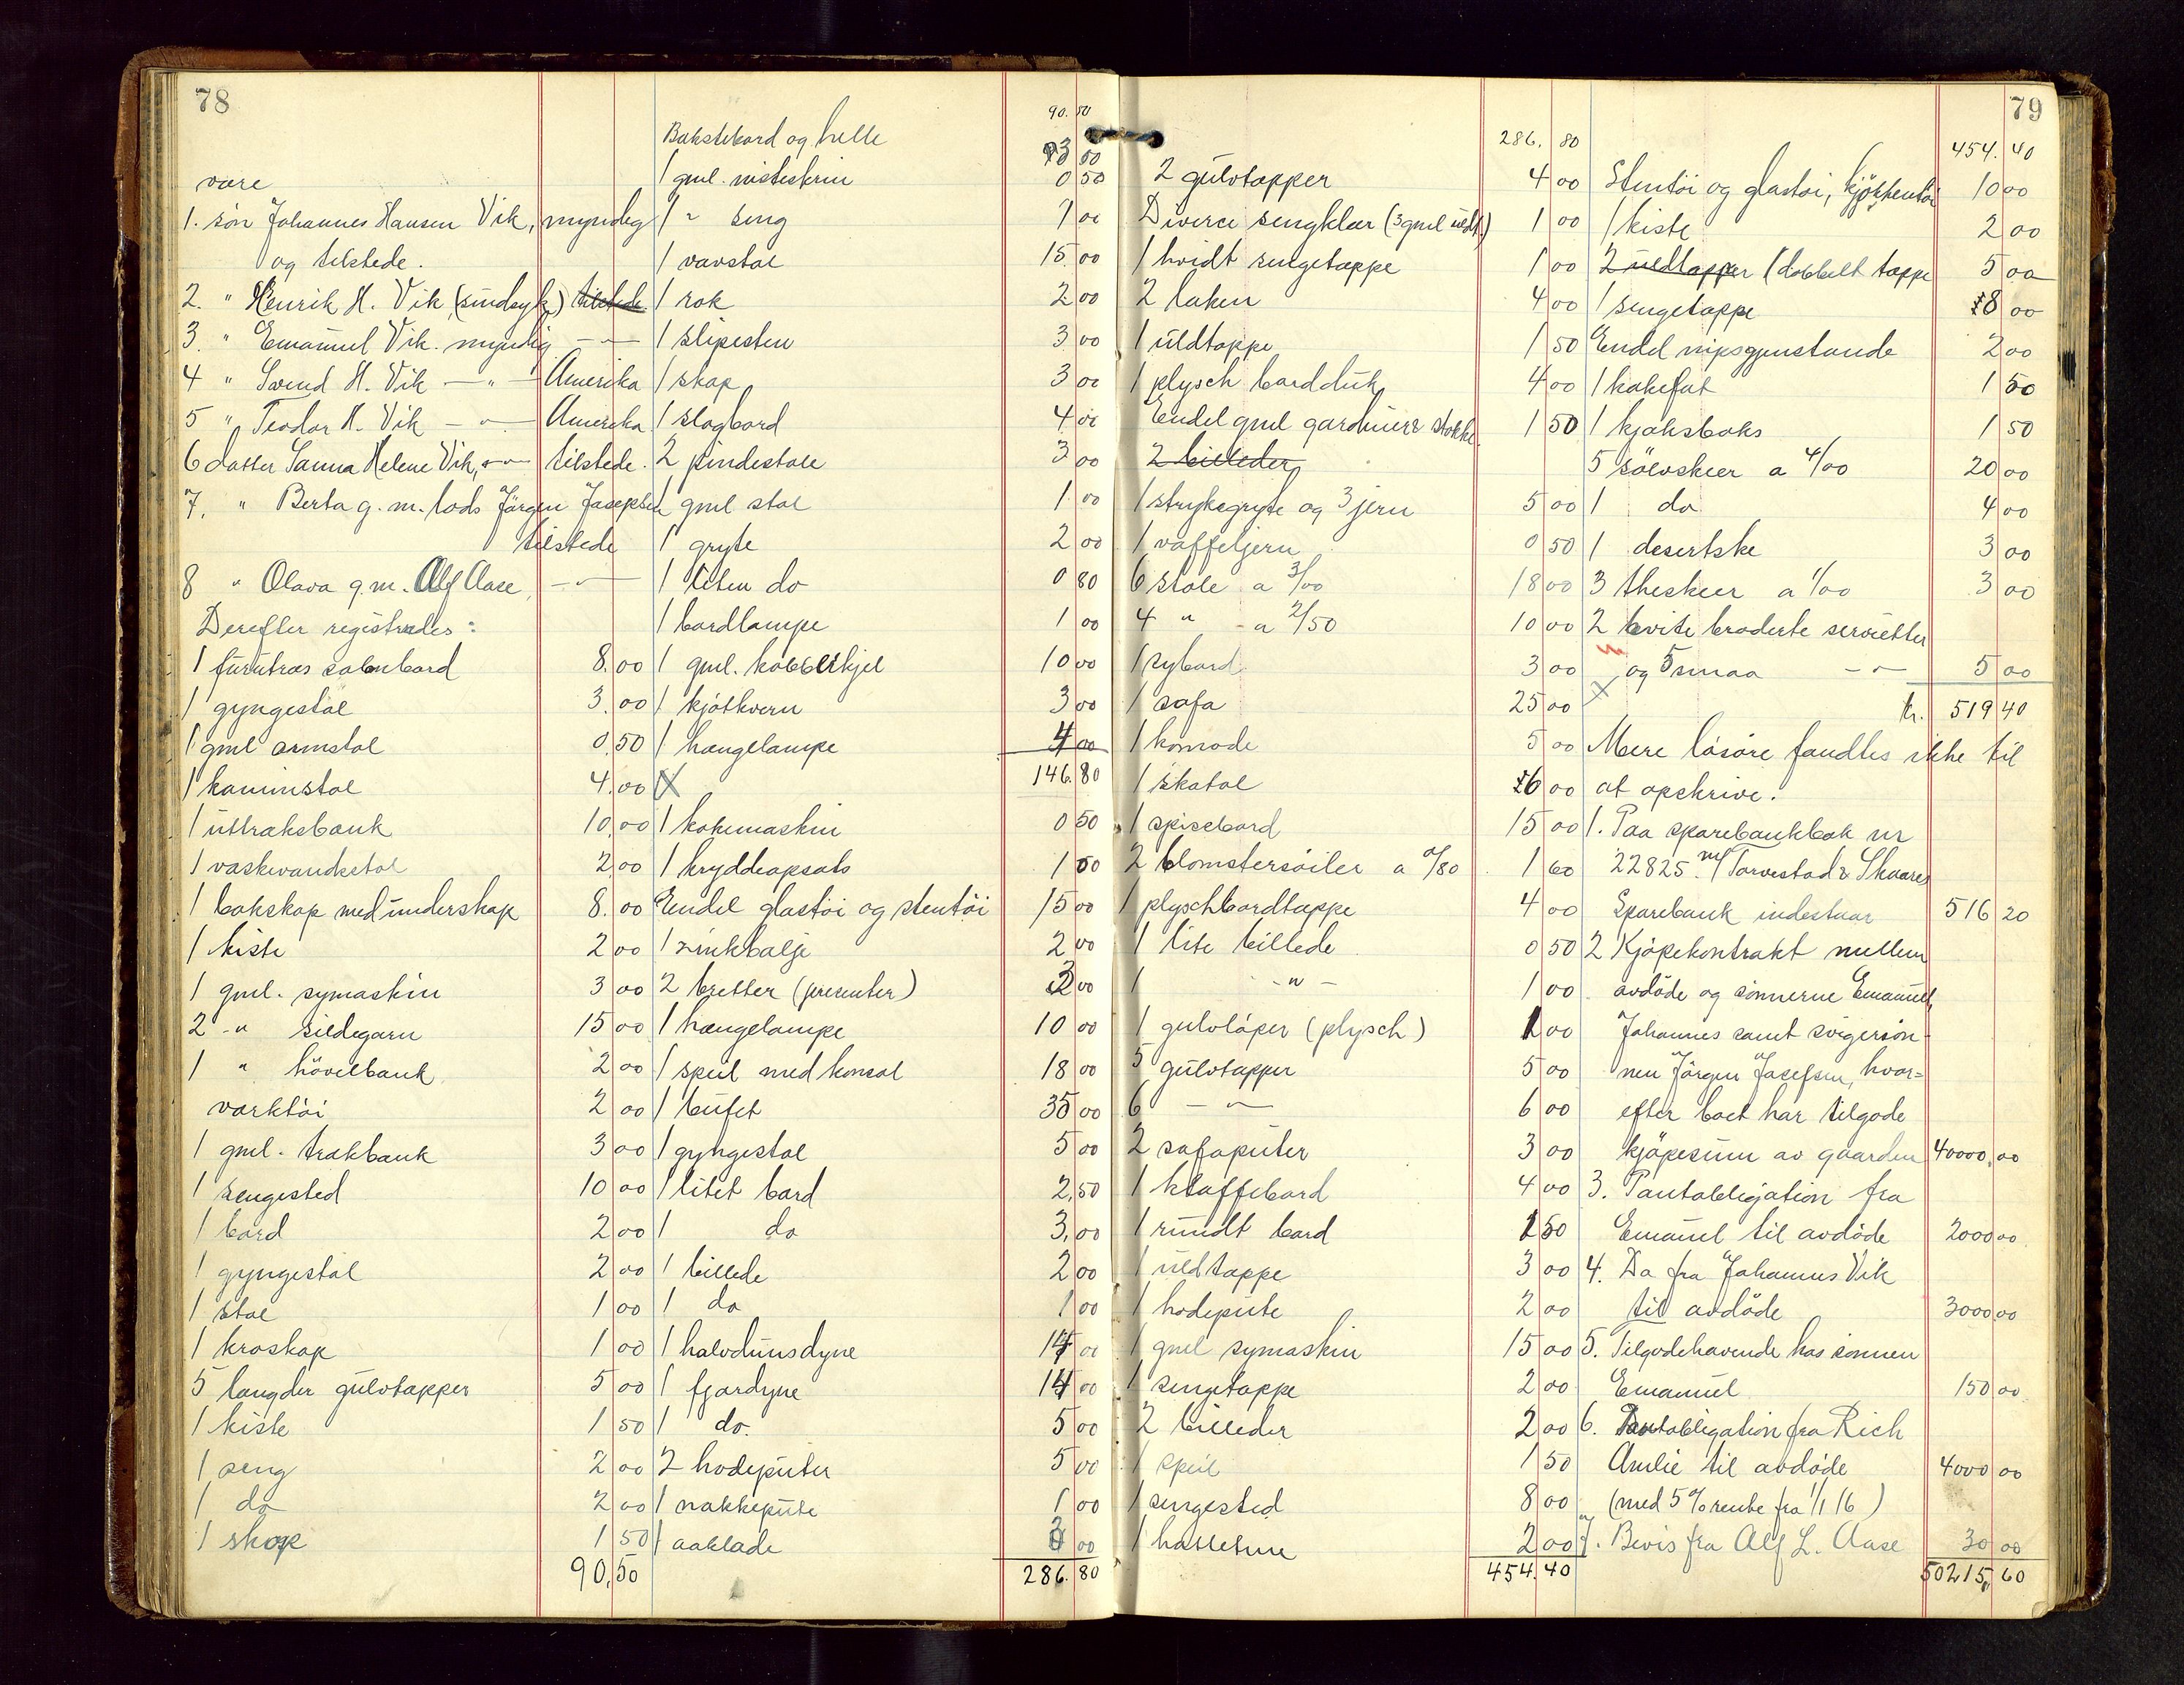 78
være
1. søn Johannes Hansen Vik, myndig
og tilstede.
2. " Henrik H. Vik, (sindsyk) tilstede
3. " Emanuel Vik. myndig — " —
4 " Svend H. Vik — " — Amerika
5 " Teodor H. Vik — " — Amerika
6 datter Sanna Helene Vik, — " — tilstede.
7. " Berta g. m. lods Jörgen Josepsen
tilstede
8 " Olava g. m. Alf Aase, — " —
Derefter registredes:
1 furutræs salonbord 8.00
1 gyngestol 3.00
1 gml armstol 0.50
1 kaminstol 4.00
1 uttræksbænk 10.00
1 vaskevandsstol 2.00
1 bokskap med underskap 8.00
1 kiste 2 00
1 gml. symaskin 3 00
2 -"- sildegarn 15 00
1 " hövelbænk 2 00
værktöi 2 00
1 gml. trækbænk 3 00
1 sengested 10 00
1 bord 2 00
1 gyngestol 2 00
1 stol 1 00
1 kroskap 1 00
5 længder gulvtæpper 5 00
1 kiste 1 50
1 seng 2 00
1 do 2 00
1 skap 1 50
90,50
90.50
Bakstebord og helle 3 00
1 gml. nisteskrin 0 50
1 " seng 1 00
1 vævstol 15.00
1 rok 2 00
1 slipesten 3 00
1 skap 3 00
1 slagbord 4 00
2 pindestole 3 00
1 gml stol 1 00
1 gryte 2 00
1 liten do 0 80
1 bordlampe 1 00
1 gml. kobberkjel 10 00
1 kjötkvern 3 00
1 hængelampe 4 00
146.80
1 kokemaskin 0 50
1 kryddeopsats 1 50
Endel glastöi og stentöi 15 00
1 sinkbalje 2 00
2 bretter (presenter) 2 00
1 hængelampe 10 00
1 speil med konsol 18 00
1 bufet 35 00
1 gyngestol 5 00
1 litet bord 2,50
1 do 3,00
1 billede 2 00
1 do 1 00
1 halvdunsdyne 14 00
1 fjærdyne 14 00
1 do. 5 00
2 hodeputer 5 00
1 nakkepute 1 00
1 aaklæde 3 00
286.80
286.80
2 gulvtæpper 4 00
Diverse sengklær (3 gml uldt.) 1 00
1 hvidt sengetæppe 1 00
2 laken 4 00
1 uldtæppe 1 50
1 plysch bordduk 4 00
Endel gml gardiner & stokke 1 50
2 billeder
1 strykegryte og 3 jern 5 00
1 vaffeljern 0 50
6 stole a 3/00 18 00
4 " - a 2/50 10 00
1 sybord 3 00
1 sofa 25 00
1 komode 5 00
1 skatol 6 00
1 spisebord 15 00
2 blomstersöiler a 0/80 1 60
1 plyschbordtæppe 4 00
1 lite billede 0 50
1 - " - 1 00
1 gulvlöper (plysch) 1 00
5 gulvtæpper 5 00
6 — " — 6 00
2 sofaputer 3 00
1 klaffebord 4 00
1 rundt bord 1 50
1 uldtæppe 3 00
1 hodepute 2 00
1 gml symaskin 15 00
1 sengetæppe 2 00
2 billeder 2 00
1 speil 1 50
1 sengested 8 00
1 2 00
454.40
79
454.40
Stentöi og glastöi, kjökkentöi 10 00
1 kiste 2 00
2 uldtæpper 1 dobbelt tæppe 5 00
1 sengetæppe 8 00
Endel nipsgjenstande 2 00
1 kakefat 1 50
1 kjeksboks 1 50
5 sölvskeer a 4/00 20 00
1 do 4 00
1 desertske 3 00
3 theskeer a 1/00 3 00
2 hvite broderte servietter
og 5 smaa — " — 5 00
kr. 519 40
Mere lösöre fandtes ikke til
at opskrive.
1. Paa sparebankbok nr
22825 m/ Torvestad & Skaare
Sparebank indestaar 516 20
2 Kjöpekontrakt mellem
avdöde og sönnerne Emanuel,
Johannes samt svigersön-
nen Jörgen Josefsen, hvor=
efter boet har tilgode
kjöpesum av gaarden 40000,00
3. Pantobligation fra
Emanuel til avdöde 2000 00
4. Do fra Johannes Vik
til avdöde 3000,00
5. Tilgodehavende hos sönnen
Emanuel 150,00
6. Pantobligation fra Rich
Amlie til avdöde 4000 00
(med 5 % rente fra 1/1 16)
7. Bevis fra Alf L. Aase 30 00
50215,60